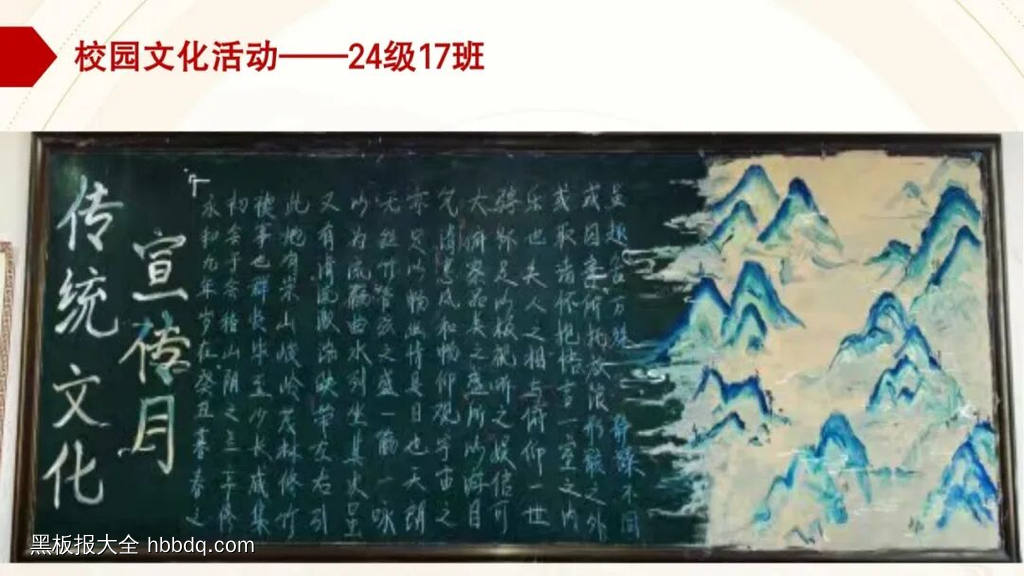 校园文化活动——24级17班
传统文化
宣传月
永和九年岁在癸丑暮春之
初会于会稽山阴之兰亭修
禊事也群贤毕至少长咸集
此地有崇山峻岭茂林修竹
又有清流激湍映带左右引
以为流觞曲水列坐其次虽
无丝竹管弦之盛一觞一咏
亦足以畅幽情是日也天朗
气清惠风和畅仰观宇宙之
大俯察品类之盛所以游目
骋怀足以极视听之娱信可
乐也夫人之相与俯仰一世
或取诸怀抱悟言一室之内
或因寄所托放浪形骸之外
虽趣舍万殊静躁不同
黑板报大全 hbbdq.com